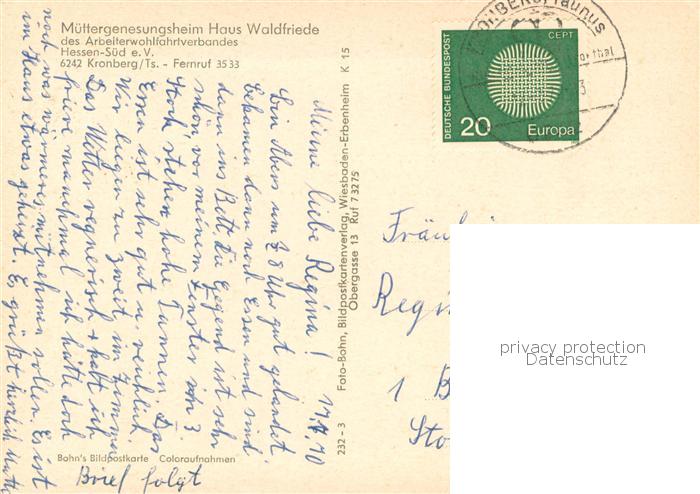 Müttergenesungsheim Haus Waldfriede
des Arbeiterwohlfahrtverbandes
Hessen-Süd e.V.
6242 Kronberg/Ts. - Fernruf 3533
17.5.70
Meine liebe Regina!
Bin Abens um ½ 8 Uhr gut gelandet
bekamen dann noch Essen und sind
dann ins Bett. Die Gegend ist sehr
schön vor meinem Fenster im 3
Stock stehen hohe Tannen. Das
Essen ist sehr gut u. reichlich
Wir liegen zu zweit im Zimmer
Das Wetter regnerisch + kalt ich
friere manchmal ich hätte doch
noch was wärmeres mitnehmen sollen. Es ist
im Haus etwas geheizt. Es grüßt herzlich Mutti
Brief folgt
Bohn's Bildpostkarte Coloraufnahmen
232 - 3 Foto-Bohn, Bildpostkartenverlag, Wiesbaden-Erbenheim K 15
Obergasse 13 Ruf 73275
DEUTSCHE BUNDESPOST
CEPT
20 Europa
Fräul
Regin
1 B
Sto
privacy protection
Datenschutz